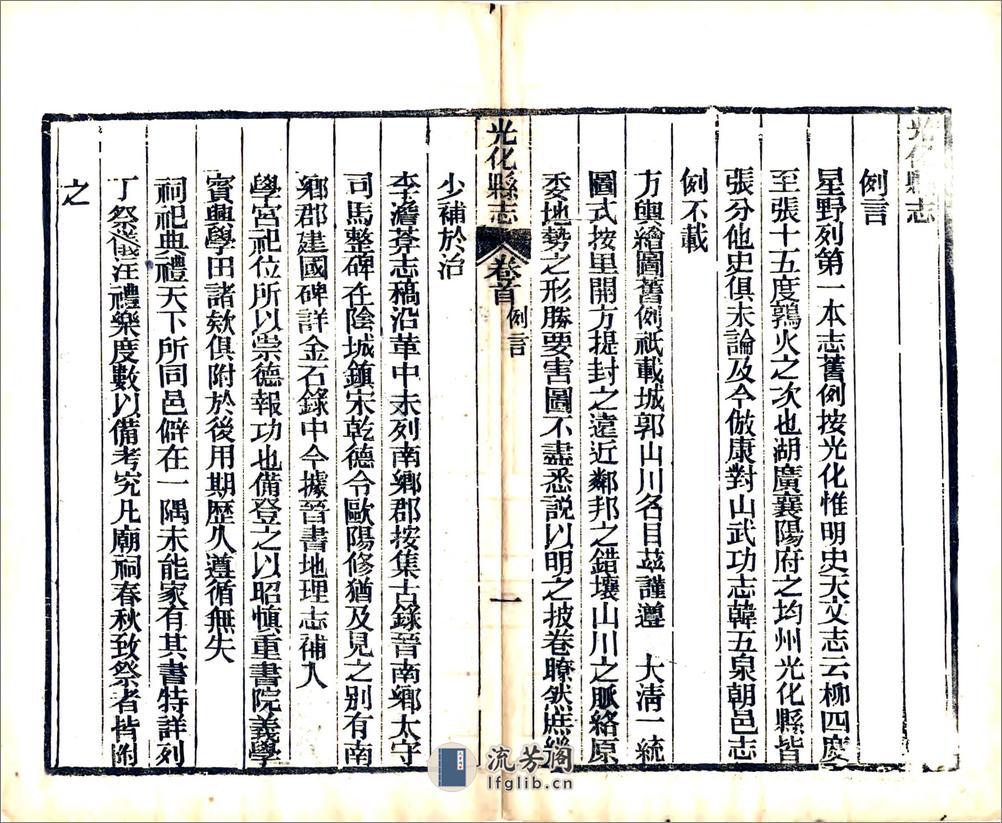 光化縣志
例言
星野列第一本志舊例按光化惟明史天文志云柳四度
至張十五度鶉火之次也湖廣襄陽府之均州光化縣皆
張分他史俱未論及今倣康對山武功志韓五泉朝邑志
例不載
方輿繪圖舊例祇載城郭山川名目茲謹遵 大清一統
圖式按里開方提封之遠近鄰邦之錯壤山川之脈絡原
委地勢之形勝要害圖不盡悉說以明之披卷瞭然庶幾
光化縣志 卷首 例言 一
少補於治
李澹荅志稿沿革中未列南鄉郡按集古錄晉南鄉太守
司馬整碑在陰城鎮宋乾德令歐陽修猶及見之別有南
鄉郡建國碑詳金石錄中今據晉書地理志補入
學宮祀位所以崇德報功也備登之以昭慎重書院義學
賓興學田諸欵俱附於後用期歷久遵循無失
祠祀典禮天下所同邑僻在一隅未能家有其書特詳列
丁祭儀注禮樂度數以備考究凡廟祠春秋致祭者皆附
之
流芳阁
lfglib.cn